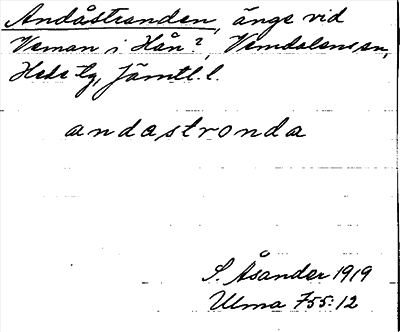 Andåstranden, änge vid
Veman i Hån?, Vemdalens sn,
Hede tg, Jämtl. l.
andastronda
S. Åsander 1919
Ulma 755:12